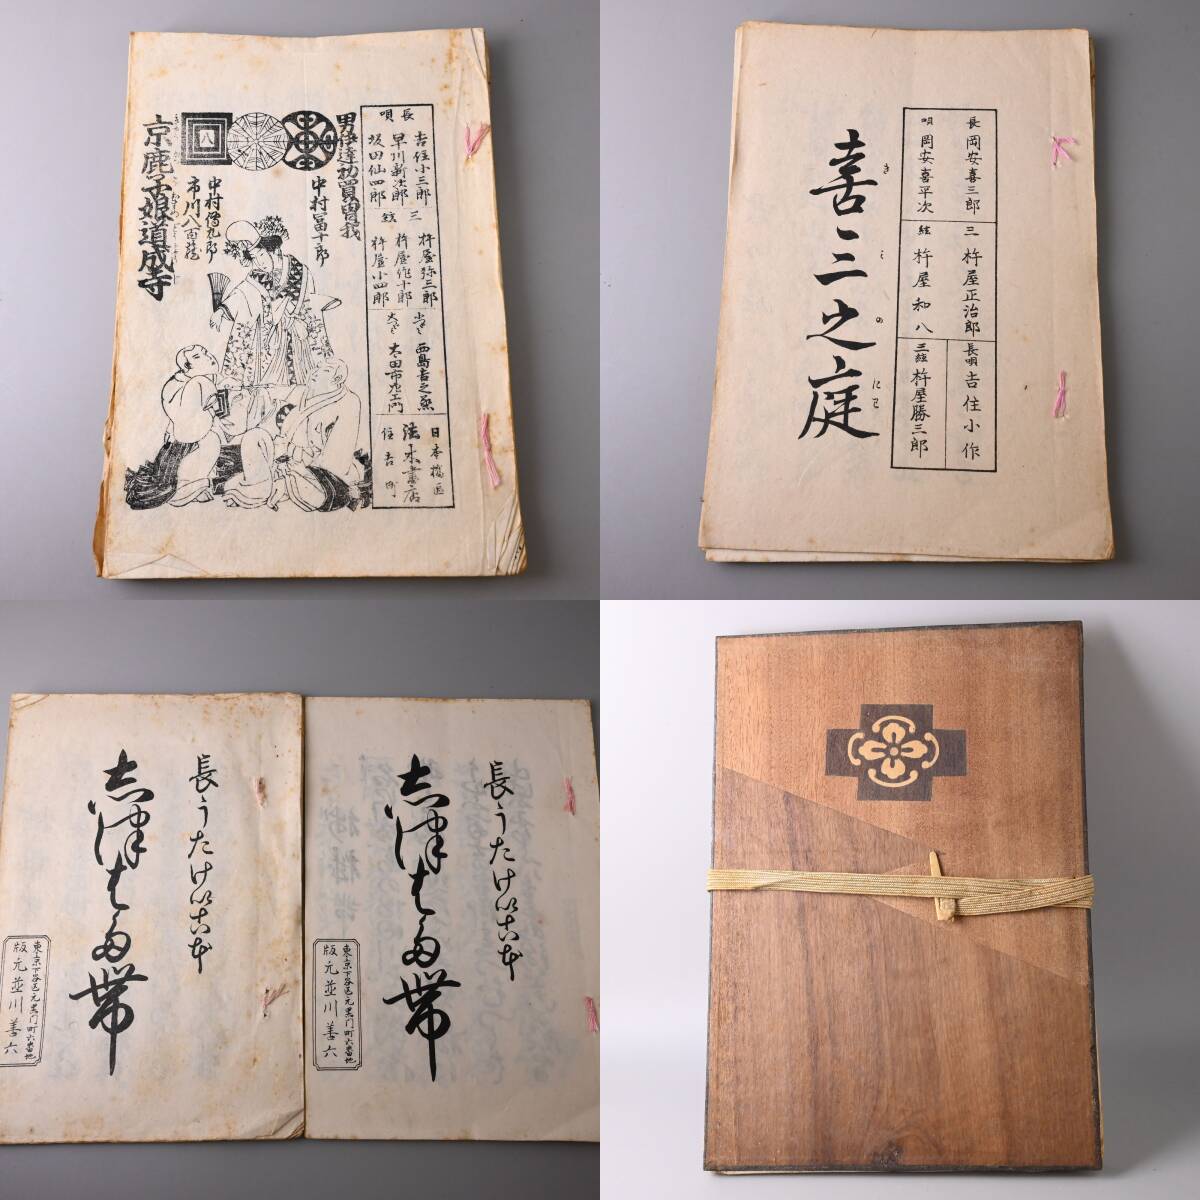 長唄
吉住小三郎
早川新次郎
坂田仙四郎
三絃
杵屋弥三郎
杵屋作十郎
杵屋小四郎
西島吉之丞
太田市左エ門
日本橋区
住吉町
法木書店
男伊達初買曽我
中村富十郎
八
中村傳九郎
市川八百蔵
京鹿子娘道成寺
長唄
岡安喜三郎
岡安喜平次
三絃
杵屋正治郎
杵屋和八
長唄 吉住小作
三絃 杵屋勝三郎
喜三之庭
き み の にわ
長うたけいこ本
志津はた帯
東京下谷区元黒门町六番地
版元並川善六
長うたけいこ本
志津はた帯
東京下谷区元黒门町六番地
版元並川善六